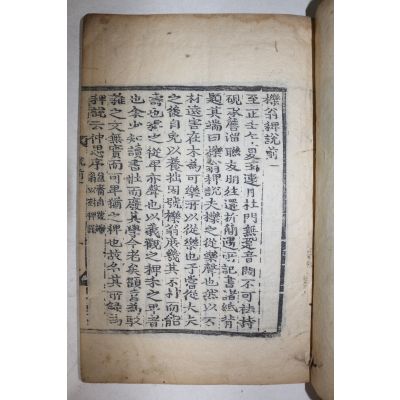 櫟翁稗說前一
至正壬午夏雨連月杜門無跫音悶不可袪持
硯承簷溜聯友朋往還折簡遇所記書諸紙背
題其端曰櫟翁稗說夫櫟之從樂聲也然以不
材遠害在木爲可樂所以從樂也予嘗從大夫
之後自免以養拙因號櫟翁庶幾其不材而能
壽也稗之從卑亦聲也以義觀之稗禾之卑者
也余少知讀書壯而廢其學今老矣顧喜爲駁
雜之文無實而可卑猶之稗也故名其所錄爲
稗說云仲思序